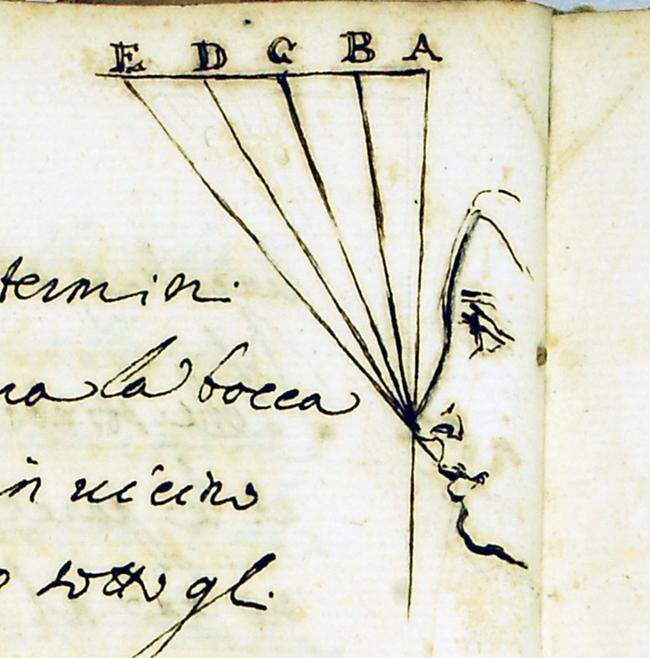 E D C B A
termini.
la bocca
in vicino
sotto gl.